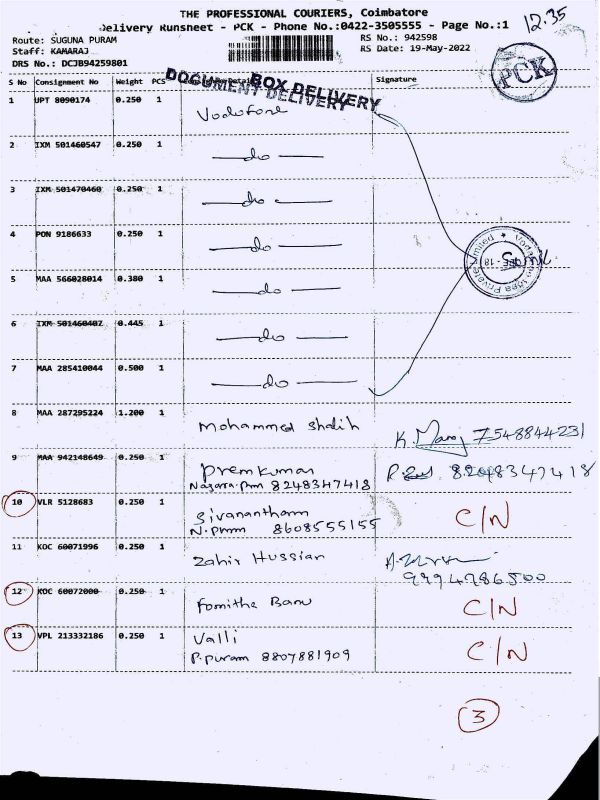 THE PROFESSIONAL COURIERS, Coimbatore
Delivery Runsheet - PCK - Phone No.:0422-3505555 - Page No.:1
12.35
Route: SUGUNA PURAM
RS No.: 942598
Staff: KAMARAJ
RS Date: 19-May-2022
DRS No.: DCJB94259801
PCK
S No Consignment No Weight PCS Signature
DOCUMENT DELIVERY
BOX DELIVERY
1 UPT 8090174 0.250 1 Vodofone
2 IXM 501460547 0.250 1 —do—
3 IXM 501470460 0.250 1 —do—
4 PON 9186633 0.250 1 —do—
5 MAA 566028014 0.380 1 —do—
6 IXM 501460407 0.445 1 —do—
7 MAA 285410044 0.500 1 —do—
8 MAA 287295224 1.200 1 Mohammed Shalih K. 7548844231
9 MAA 942148649 0.250 1 Premkumar 8248347418
8248347418
10 VLR 5128683 0.250 1 Sivanantham C/N
N.pmm 8608555155
11 KOC 60071996 0.250 1 Zahir Hussian
9994986500
12 KOC 60072000 0.250 1 Fomitha Banu C/N
13 VPL 213332186 0.250 1 Valli C/N
P.puram 8807881909
3